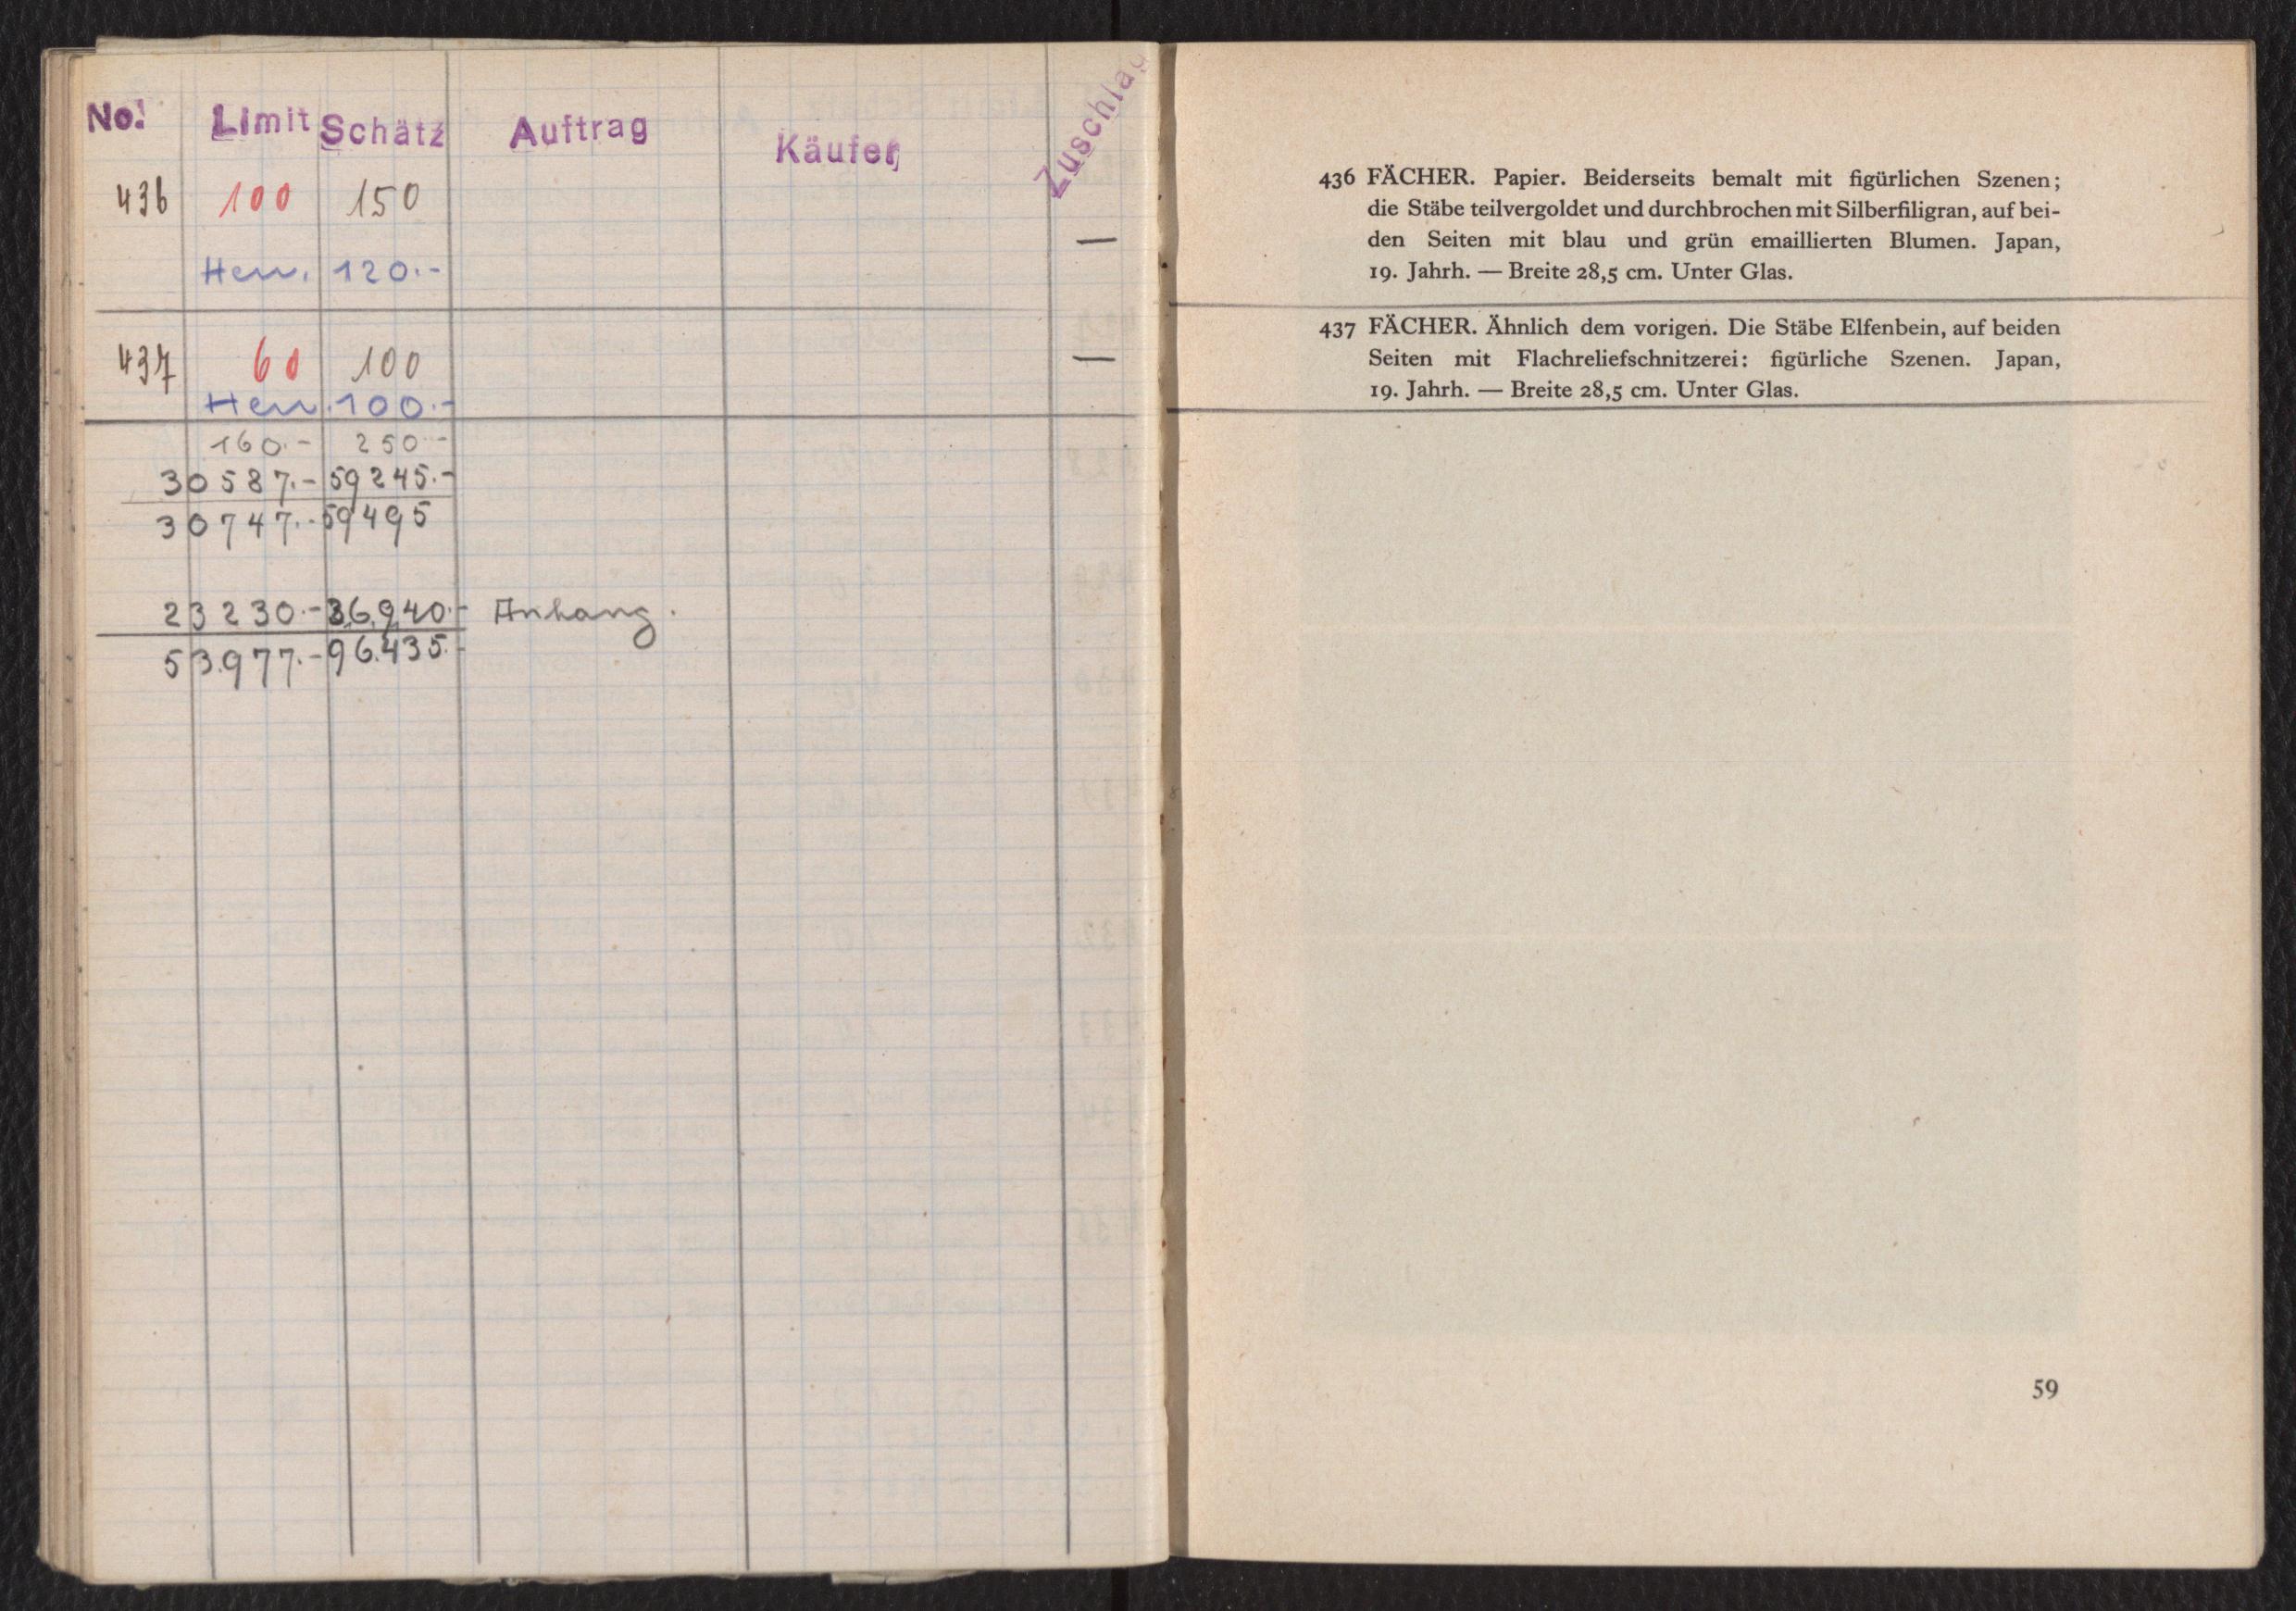 No. Limit Schätz Auftrag Käufer Zuschlag
436 100 150
Herr. 120.- —
437 60 100 —
Herr. 100.-
160.- 250.-
30587.- 59245.-
30747.- 59495
23230.- 36.940.- Anhang.
53.977.- 96.435.-
436 FÄCHER. Papier. Beiderseits bemalt mit figürlichen Szenen;
die Stäbe teilvergoldet und durchbrochen mit Silberfiligran, auf bei-
den Seiten mit blau und grün emaillierten Blumen. Japan,
19. Jahrh. — Breite 28,5 cm. Unter Glas.
437 FÄCHER. Ähnlich dem vorigen. Die Stäbe Elfenbein, auf beiden
Seiten mit Flachreliefschnitzerei: figürliche Szenen. Japan,
19. Jahrh. — Breite 28,5 cm. Unter Glas.
59